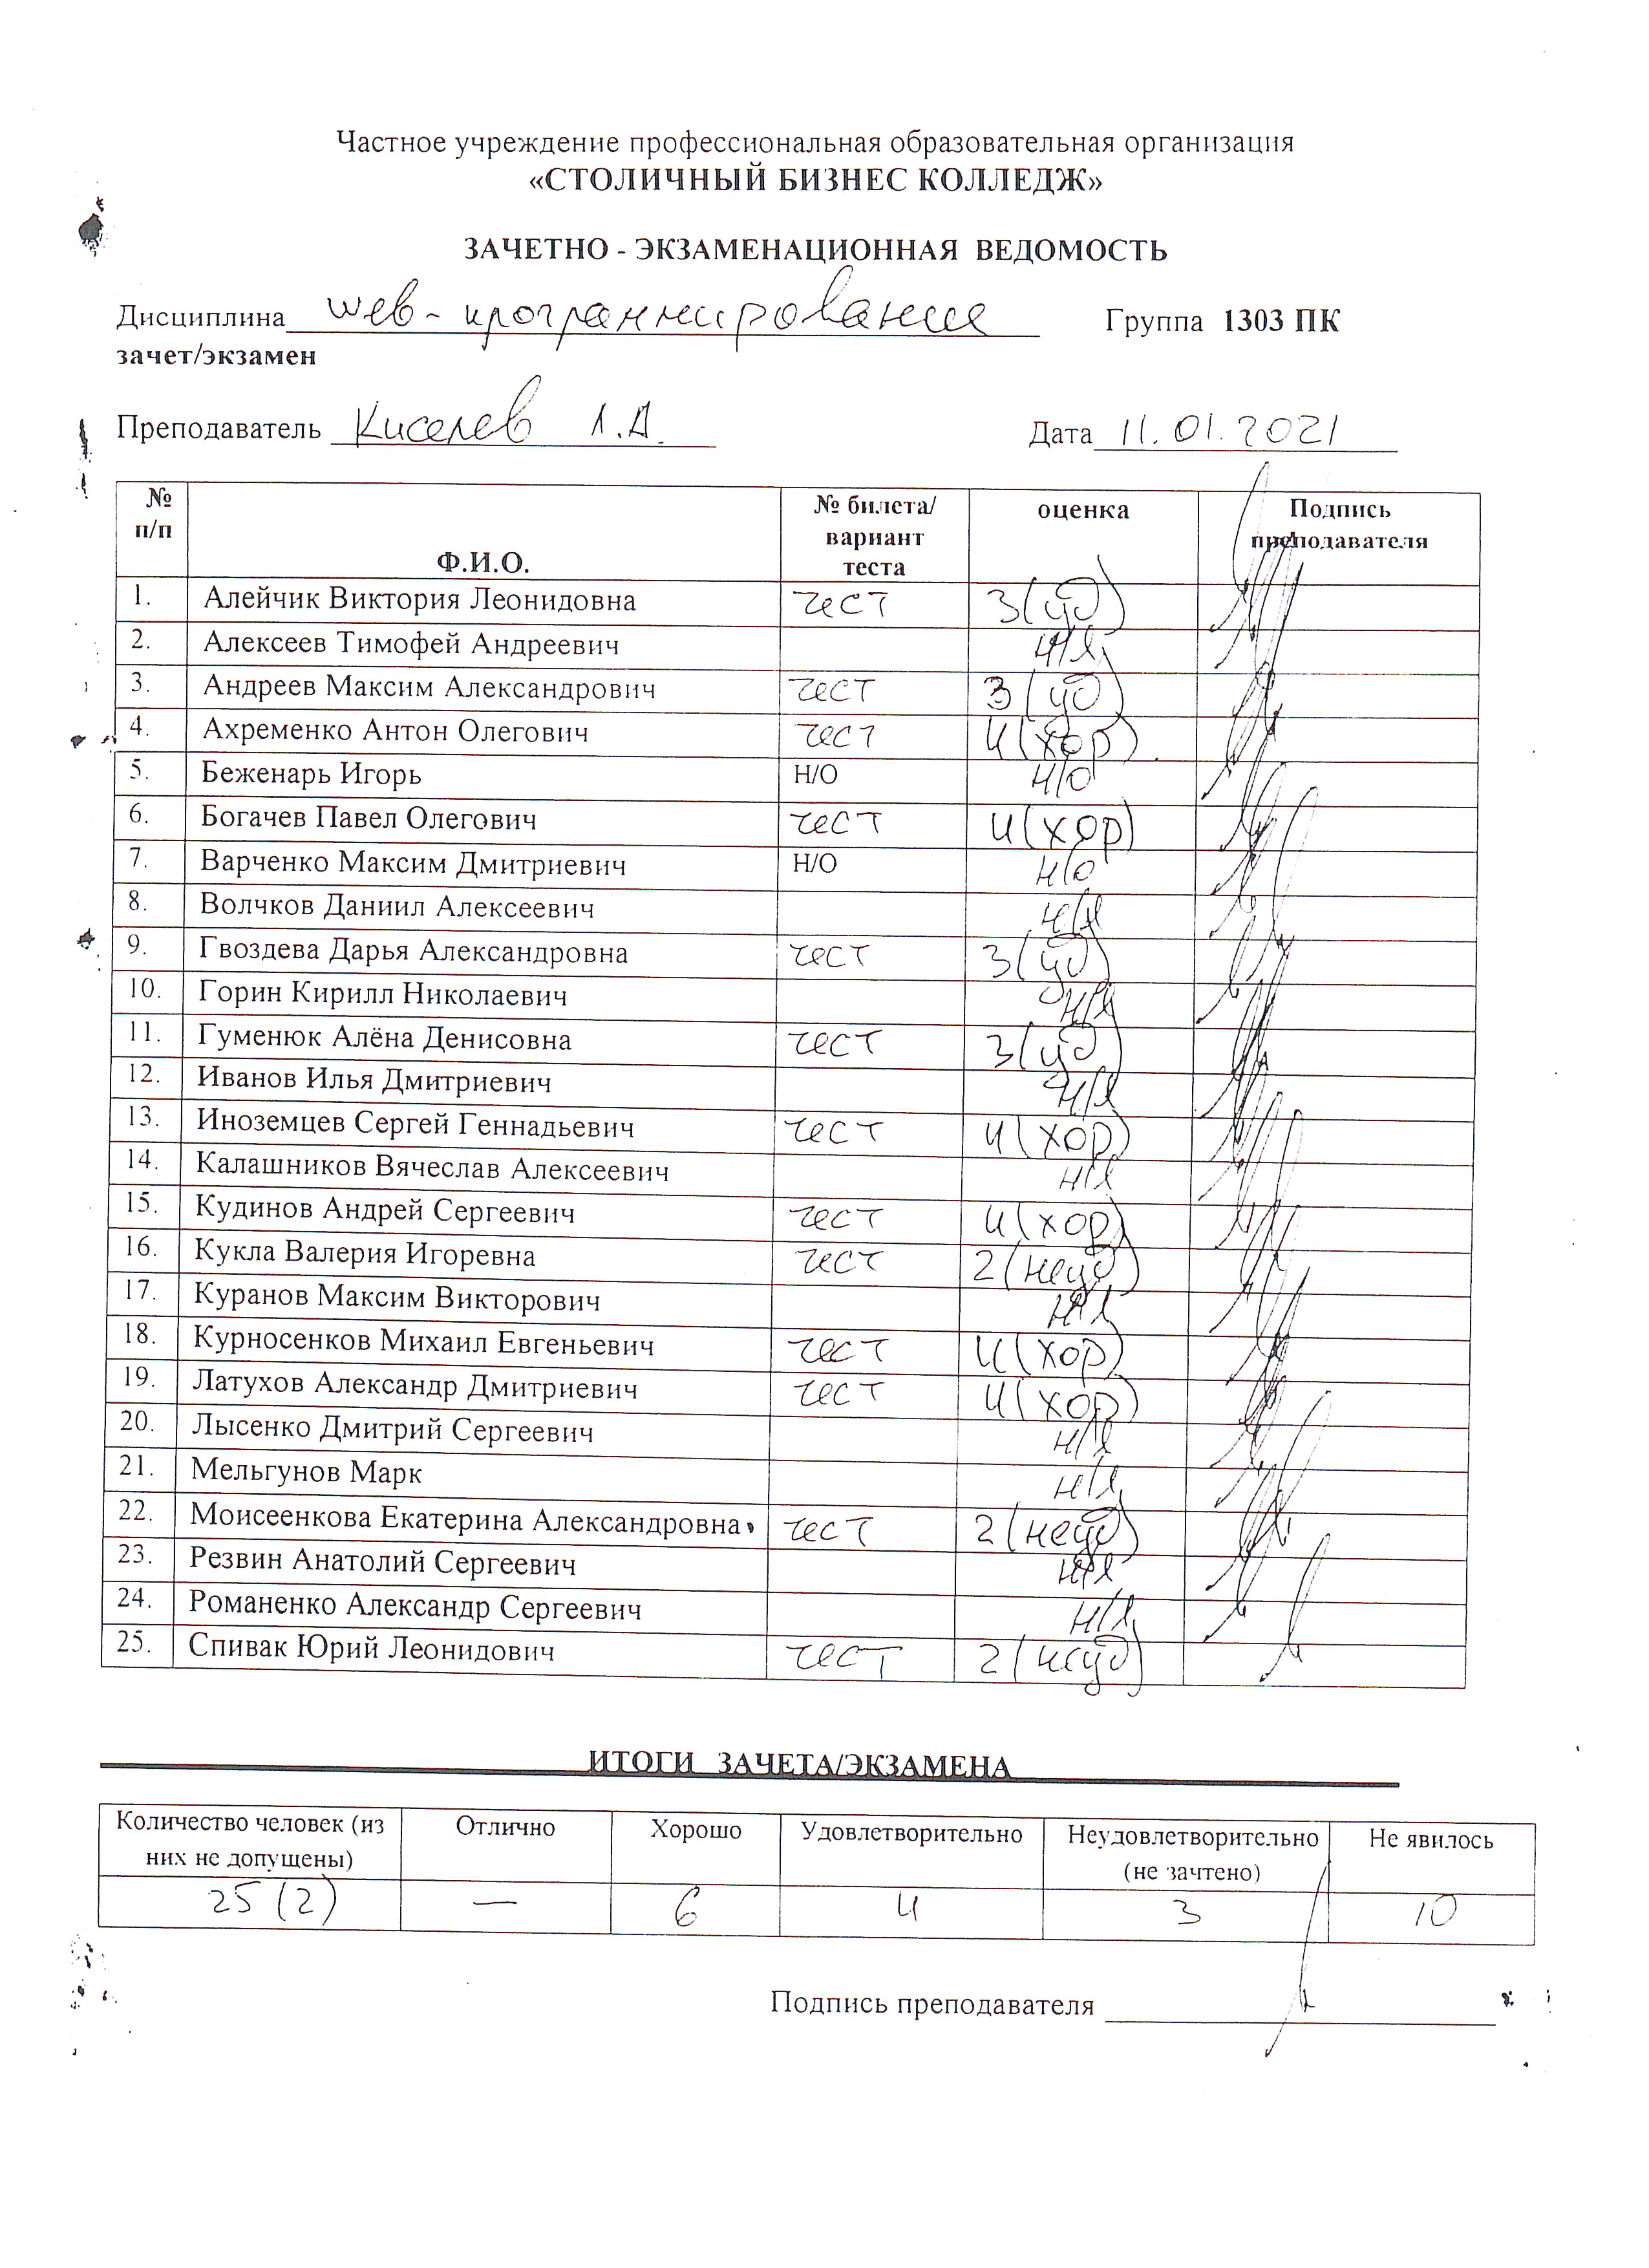 Частное учреждение профессиональная образовательная организация
«СТОЛИЧНЫЙ БИЗНЕС КОЛЛЕДЖ»
ЗАЧЕТНО - ЭКЗАМЕНАЦИОННАЯ ВЕДОМОСТЬ
Дисциплина web-программирование Группа 1303 ПК
зачет/экзамен
Преподаватель Киселев Л.А. Дата 11.01.2021
№ п/п Ф.И.О. № билета/ вариант теста оценка Подпись преподавателя
1. Алейчик Виктория Леонидовна тест 3(уд)
2. Алексеев Тимофей Андреевич н/я
3. Андреев Максим Александрович тест 3(уд)
4. Ахременко Антон Олегович тест 4(хор)
5. Беженарь Игорь Н/О н/о
6. Богачев Павел Олегович тест 4(хор)
7. Варченко Максим Дмитриевич Н/О н/о
8. Волчков Даниил Алексеевич н/я
9. Гвоздева Дарья Александровна тест 3(уд)
10. Горин Кирилл Николаевич н/я
11. Гуменюк Алёна Денисовна тест 3(уд)
12. Иванов Илья Дмитриевич н/я
13. Иноземцев Сергей Геннадьевич тест 4(хор)
14. Калашников Вячеслав Алексеевич н/я
15. Кудинов Андрей Сергеевич тест 4(хор)
16. Кукла Валерия Игоревна тест 2(неуд)
17. Куранов Максим Викторович н/я
18. Курносенков Михаил Евгеньевич тест 4(хор)
19. Латухов Александр Дмитриевич тест 4(хор)
20. Лысенко Дмитрий Сергеевич н/я
21. Мельгунов Марк н/я
22. Моисеенкова Екатерина Александровна тест 2(неуд)
23. Резвин Анатолий Сергеевич н/я
24. Романенко Александр Сергеевич н/я
25. Спивак Юрий Леонидович тест 2(неуд)
ИТОГИ ЗАЧЕТА/ЭКЗАМЕНА
Количество человек (из них не допущены) Отлично Хорошо Удовлетворительно Неудовлетворительно (не зачтено) Не явилось
25(2) — 6 4 3 10
Подпись преподавателя